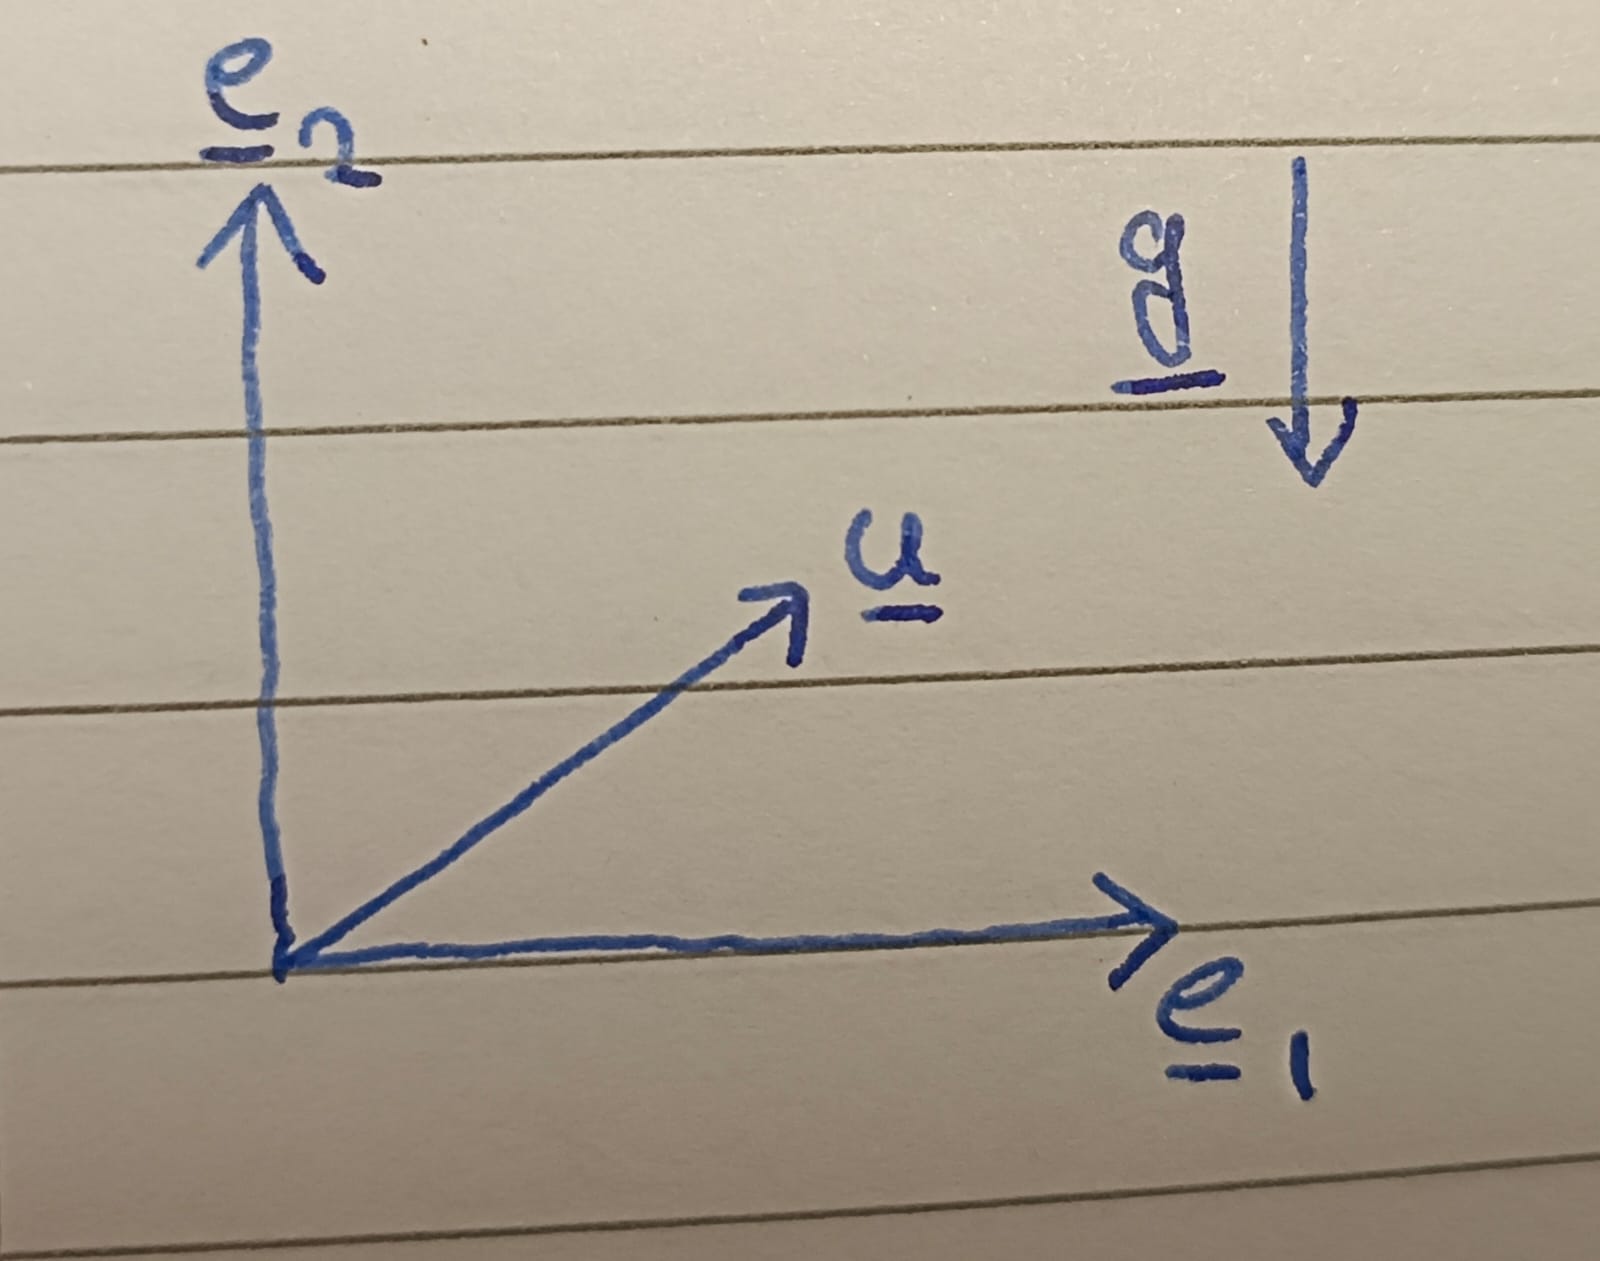 e2
g
u
e1